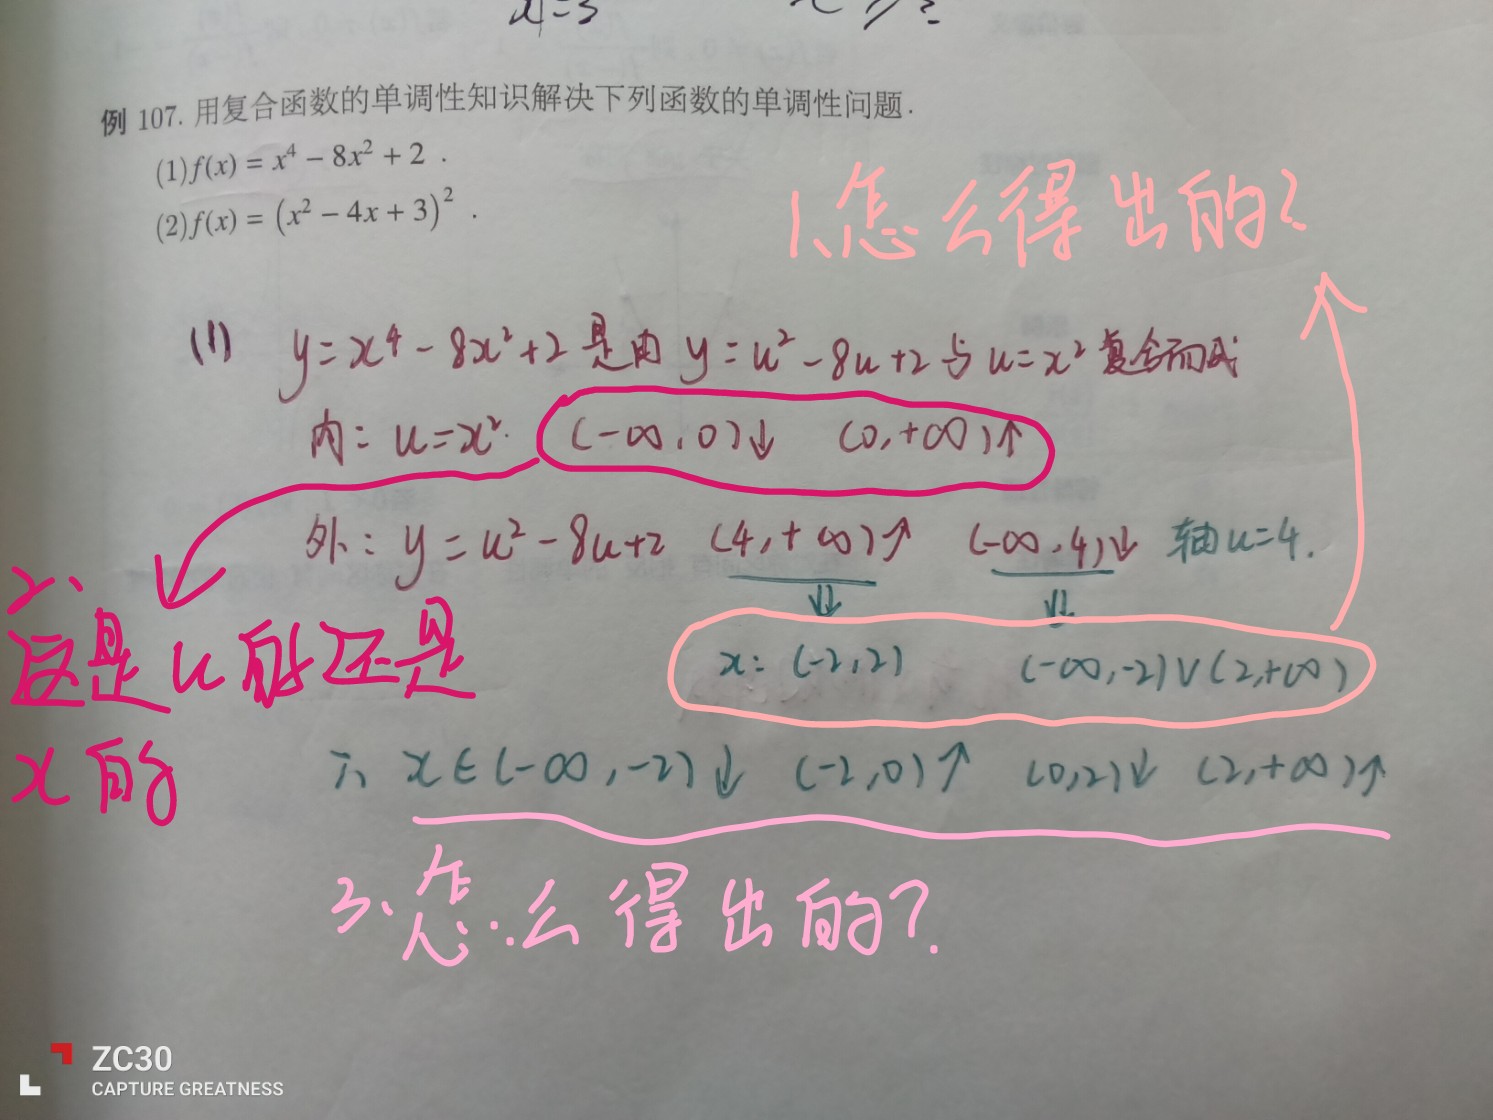 x=3
例 107. 用复合函数的单调性知识解决下列函数的单调性问题.
(1) f(x) = x⁴ − 8x² + 2 .
(2) f(x) = (x² − 4x + 3)² .
1、怎么得出的?
(1) y = x⁴ − 8x² + 2 是由 y = u² − 8u + 2 与 u = x² 复合而成
内: u = x². (−∞, 0)↓ (0, +∞)↑
外: y = u² − 8u + 2 (4, +∞)↗ (−∞, 4)↓ 轴 u = 4.
⇓ ⇓
x: (−2, 2) (−∞, −2)∨(2, +∞)
2、
这是u的还是
x的
∴ x∈(−∞, −2)↓ (−2, 0)↗ (0, 2)↓ (2, +∞)↗
3、怎么得出的?
ZC30
CAPTURE GREATNESS